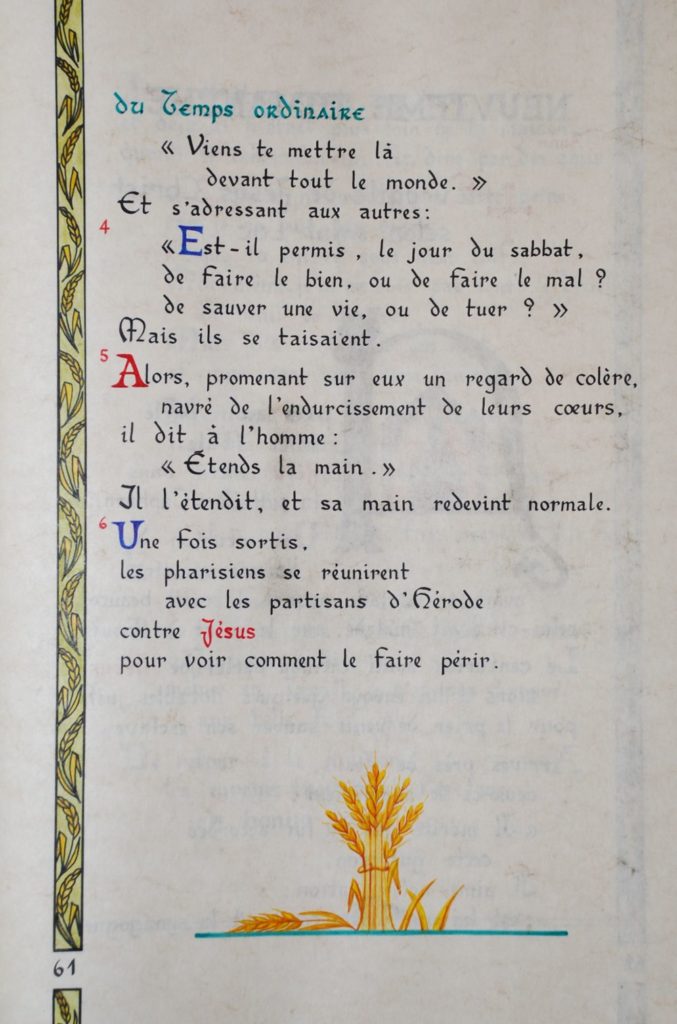 du Temps ordinaire
« Viens te mettre là
devant tout le monde. »
Et s'adressant aux autres :
4 « Est-il permis, le jour du sabbat,
de faire le bien, ou de faire le mal ?
de sauver une vie, ou de tuer ? »
Mais ils se taisaient.
5 Alors, promenant sur eux un regard de colère,
navré de l'endurcissement de leurs cœurs,
il dit à l'homme :
« Étends la main. »
Il l'étendit, et sa main redevint normale.
6 Une fois sortis,
les pharisiens se réunirent
avec les partisans d'Hérode
contre Jésus
pour voir comment le faire périr.
61